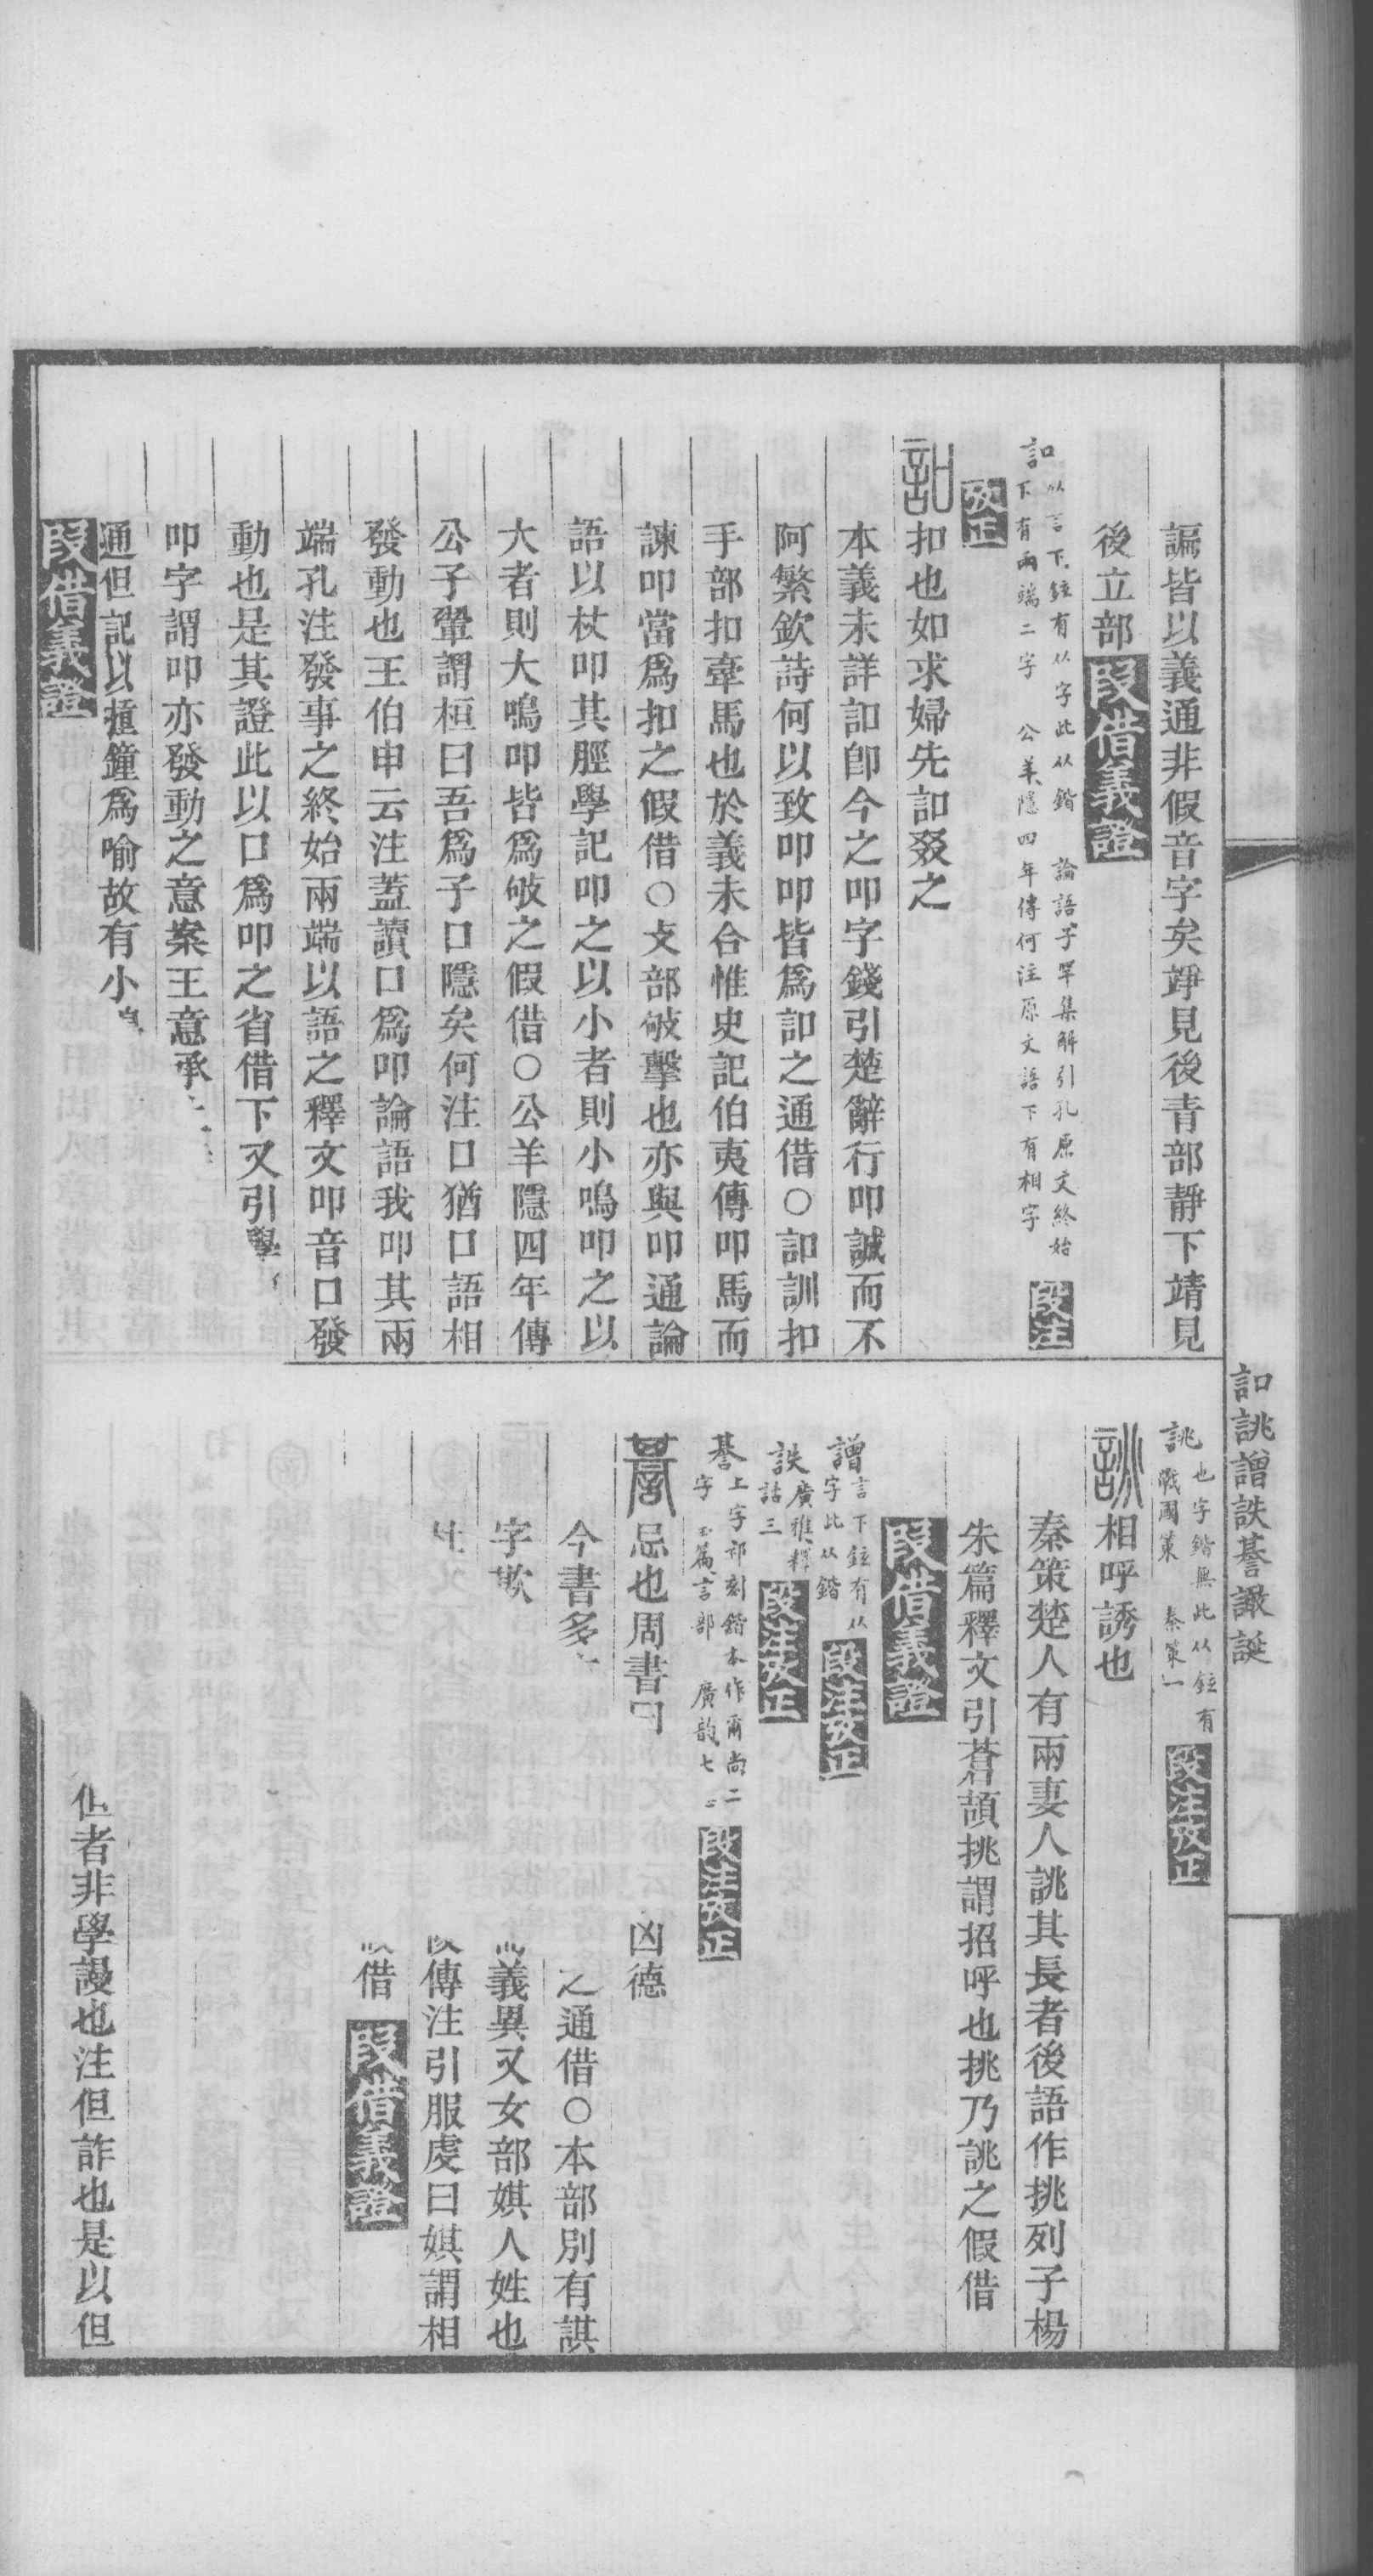 諞皆以義通非假音字矣竫見後青部靜下靖見
後立部段借義證
訆
以言下鉉有从字此从鍇　論語子罕集解引孔原文終始
下有兩端二字　公羊隱四年傳何注原文語下有相字
段注
攷正
扣也如求婦先訆叕之
本義未詳訆卽今之叩字錢引楚辭行叩誠而不
阿繁欽詩何以致叩叩皆爲訆之通借○訆訓扣
手部扣牽馬也於義未合惟史記伯夷傳叩馬而
諫叩當爲扣之假借○攴部敂擊也亦與叩通論
語以杖叩其脛學記叩之以小者則小鳴叩之以
大者則大鳴叩皆爲敂之假借○公羊隱四年傳
公子翬謂桓曰吾爲子口隱矣何注口猶口語相
發動也王伯申云注蓋讀口爲叩論語我叩其兩
端孔注發事之終始兩端以語之釋文叩音口發
動也是其證此以口爲叩之省借下又引學
叩字謂叩亦發動之意案王意承
通但記以撞鐘爲喻故有小
段借義證
訆誂譄詄諅譀誕
誂
也字鍇無此从鉉有
戰國策　秦策一
段注攷正
相呼誘也
秦策楚人有兩妻人誂其長者後語作挑列子楊
朱篇釋文引蒼頡挑謂招呼也挑乃誂之假借
段借義證
譄
言下鉉有从
字此从鍇
段注攷正
詄
廣雅釋
詁三
段注攷正
諅
上字祁刻鍇本作爾尚二
字　玉篇言部　廣韵七
段注攷正
忌也周書曰　凶德
今書多　之通借○本部別有諆
字欺　義異又女部娸人姓也
傳注引服虔曰娸謂相
借段借義證
但者非學謾也注但詐也是以但